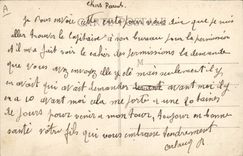 A
Chers Parents.
Je vous envoie cette carte pour vous dire que je suis
aller trouver le Capitaine a son bureau pour la permission
et il m'a fait voir le cahier des permissions la demande
que vous avez envoyez elle y été mais seulement il y
en avait qui avait demander avant moi il y
en a 10 avant moi cela me porte a une 10 taines
de jours pour venir a mon tour, toujours en bonne
santé votre fils qui vous embrasse tendrement